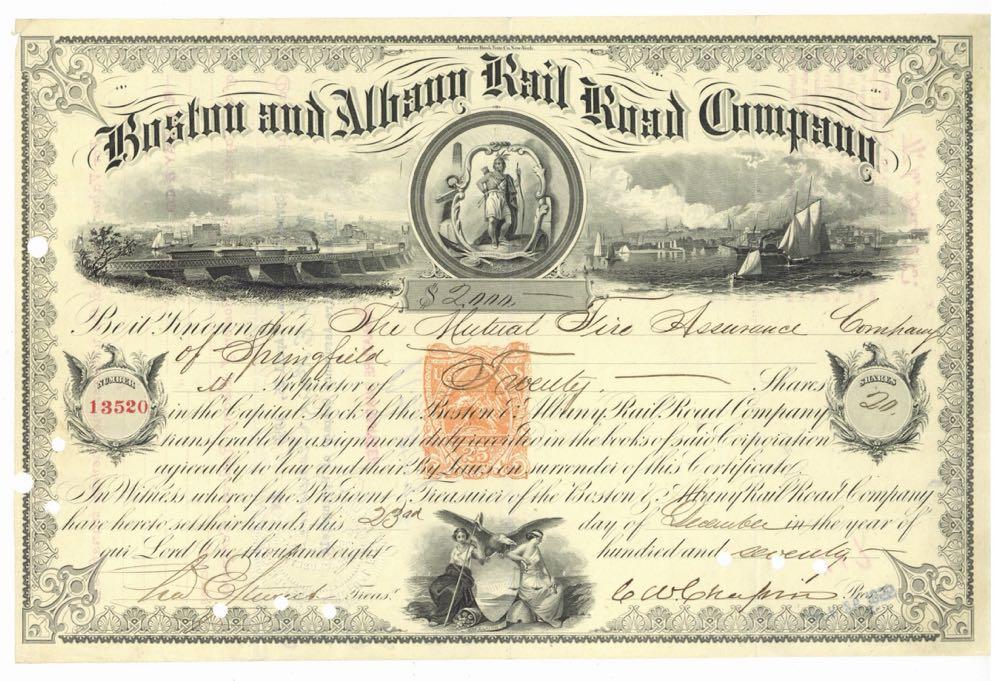 American Bank Note Co. New York.
Boston and Albany Rail Road Company
$ 2,000.
Be it Known that The Mutual Fire Assurance Company
of Springfield
is Proprietor of Twenty Shares
NUMBER
13520
SHARES
20
in the Capital Stock of the Boston & Albany Rail Road Company
transferable by assignment duly recorded in the books of said Corporation
agreeably to law and their By Laws on surrender of this Certificate.
25
In Witness whereof the President & Treasurer of the Boston & Albany Rail Road Company
have hereto set their hands this 23rd day of December in the year of
our Lord One thousand eight hundred and seventy
Treasr.
C W Chapin Prest.